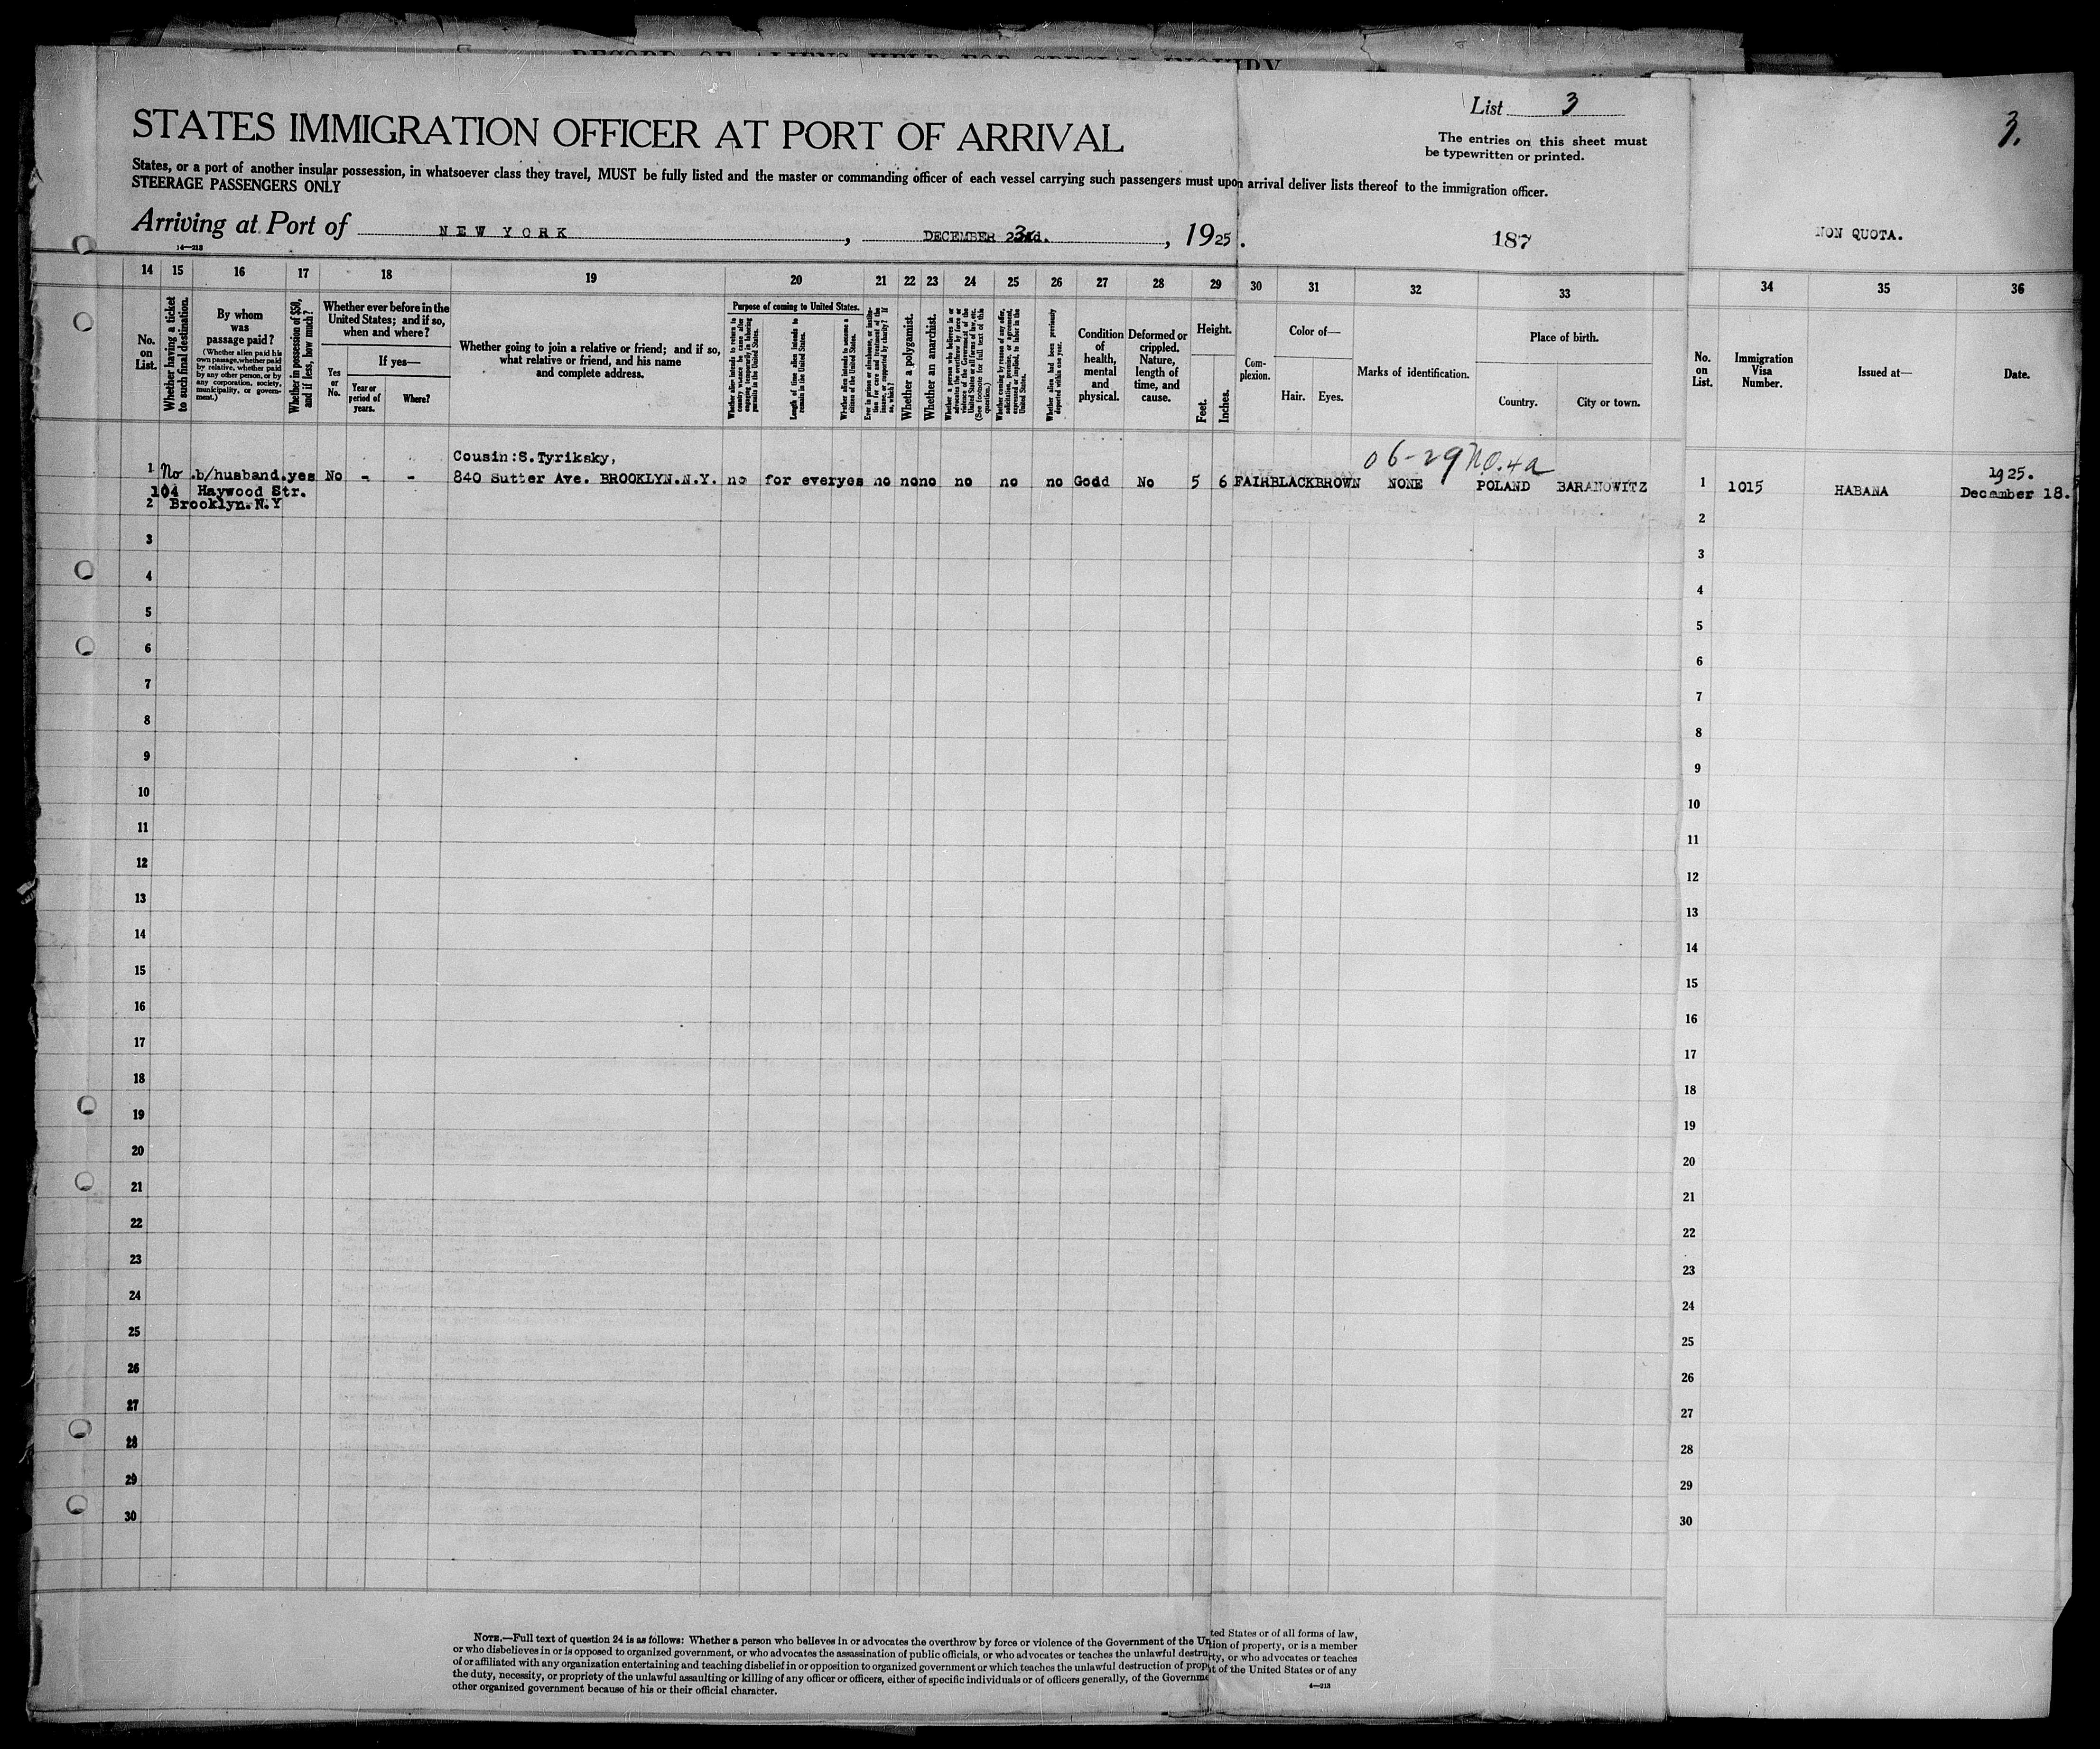 STATES IMMIGRATION OFFICER AT PORT OF ARRIVAL
List 3
The entries on this sheet must
be typewritten or printed.
3.
States, or a port of another insular possession, in whatsoever class they travel, MUST be fully listed and the master or commanding officer of each vessel carrying such passengers must upon arrival deliver lists thereof to the immigration officer.
STEERAGE PASSENGERS ONLY
Arriving at Port of NEW YORK, DECEMBER 23d., 1925.
14—213
187
NON QUOTA.
14 15 16 17 18 19 20 21 22 23 24 25 26 27 28 29 30 31 32 33 34 35 36
No. on List.
Whether having a ticket to such final destination.
By whom was passage paid?
(Whether alien paid his own passage, whether paid by relative, whether paid by any other person, or by any corporation, society, municipality, or government.)
Whether in possession of $50, and if less, how much?
Whether ever before in the United States; and if so, when and where?
Yes or No.
If yes—
Year or period of years.
Where?
Whether going to join a relative or friend; and if so, what relative or friend, and his name and complete address.
Purpose of coming to United States.
Length of time alien intends to remain in the United States.
Whether alien intends to become a citizen of the United States.
Whether a polygamist.
Whether an anarchist.
Whether alien had been previously deported within one year.
Condition of health, mental and physical.
Deformed or crippled. Nature, length of time, and cause.
Height.
Feet.
Inches.
Complexion.
Color of—
Hair. Eyes.
Marks of identification.
Place of birth.
Country.
City or town.
No. on List.
Immigration Visa Number.
Issued at—
Date.
Cousin:S.Tyriksky,
06-29 no.4a
1925.
1 No .b/husband.yes No - - 840 Sutter Ave. BROOKLYN.N.Y. no for everyes no nono no no no Godd No 5 6 FAIRBLACKBROWN NONE POLAND BARANOWITZ 1 1015 HABANA December 18.
104 Haywood Str.
2 Brooklyn.N.Y 2
3 3
4 4
5 5
6 6
7 7
8 8
9 9
10 10
11 11
12 12
13 13
14 14
15 15
16 16
17 17
18 18
19 19
20 20
21 21
22 22
23 23
24 24
25 25
26 26
27 27
28 28
29 29
30 30
NOTE.—Full text of question 24 is as follows: Whether a person who believes in or advocates the overthrow by force or violence of the Government of the United States or of all forms of law,
or who disbelieves in or is opposed to organized government, or who advocates the assassination of public officials, or who advocates or teaches the unlawful destruction of property, or is a member
of or affiliated with any organization entertaining and teaching disbelief in or opposition to organized government or which teaches the unlawful destruction of property, or who advocates or teaches
the duty, necessity, or propriety of the unlawful assaulting or killing of any officer or officers, either of specific individuals or of officers generally, of the Government of the United States or of any
other organized government because of his or their official character.
4—213